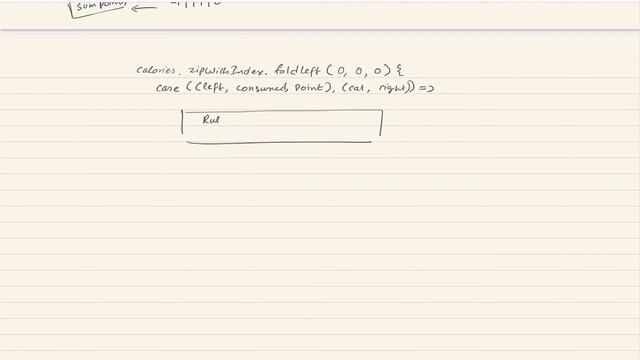 sum points
calories. zipWithIndex. foldLeft (0, 0, 0) {
case ((left, consumed, point), (cal, right)) =>
Rul